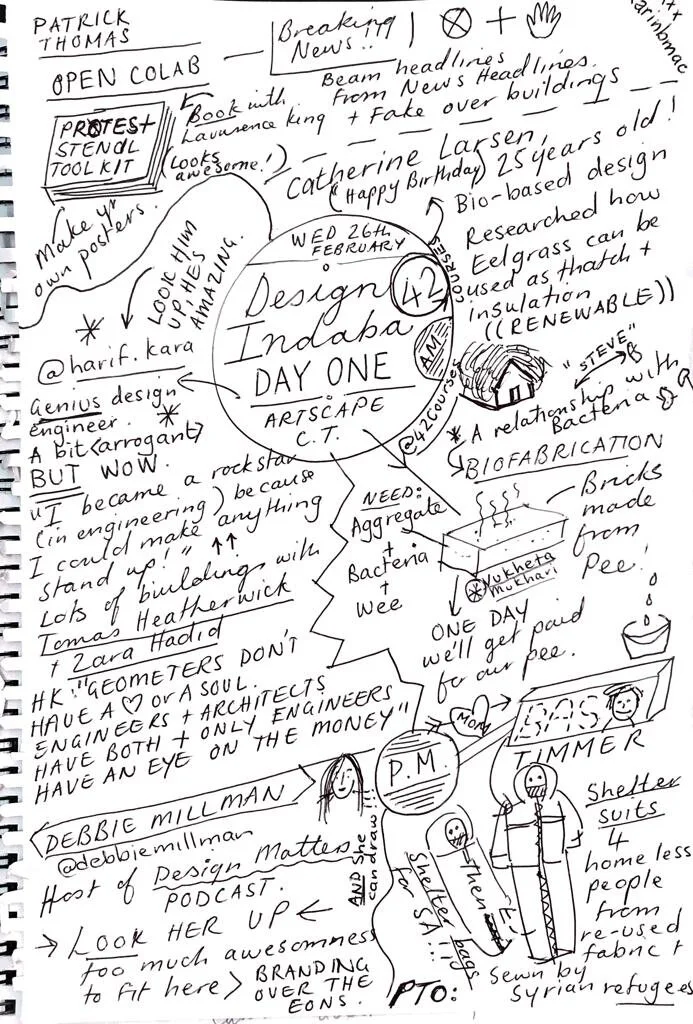 PATRICK
THOMAS
OPEN COLAB
Breaking
News!!
Beam headlines
from News Headlines.
Book with
Lawrence King + Fake over buildings
PROTEST
STENCIL
TOOLKIT
(Looks
awesome!)
Make yr
own posters.
Catherine Larsen,
(Happy Birthday) 25 years old!
Bio-based design
Researched how
Eelgrass can be
used as thatch +
insulation
((RENEWABLE))
WED 26th
FEBRUARY
Design
Indaba
DAY ONE
ARTSCAPE
C.T.
42
COURSES
AM
@42Courses
LOOK HIM
UP, HE'S
AMAZING.
@harif.kara
Genius design
engineer.
A bit (arrogant)
BUT WOW.
"I became a rockstar
(in engineering) because
I could make anything
stand up!"
Lots of buildings with
Tomas Heatherwick
+ Zara Hadid
HK: "GEOMETERS DON'T
HAVE A ♡ OR A SOUL.
ENGINEERS + ARCHITECTS
HAVE BOTH + ONLY ENGINEERS
HAVE AN EYE ON THE MONEY"
"STEVE"
A relationship with
Bacteria
BIOFABRICATION
NEED:
Aggregate
+
Bacteria
+
Wee
Bricks
made
from
Pee!
Vukheta
Mukhari
ONE DAY
we'll get paid
for our pee.
P.M.
MOM
BAS
TIMMER
Shelter
suits
4
homeless
people
from
re-used
fabric +
sewn by
Syrian refugees
Shelter bags
for SA!!!
Then
DEBBIE MILLMAN
@debbiemillman
Host of Design Matters
PODCAST.
AND she
can draw!!!
→ LOOK HER UP ←
too much awesomness
to fit here > BRANDING
OVER THE
EONS.
PTO: